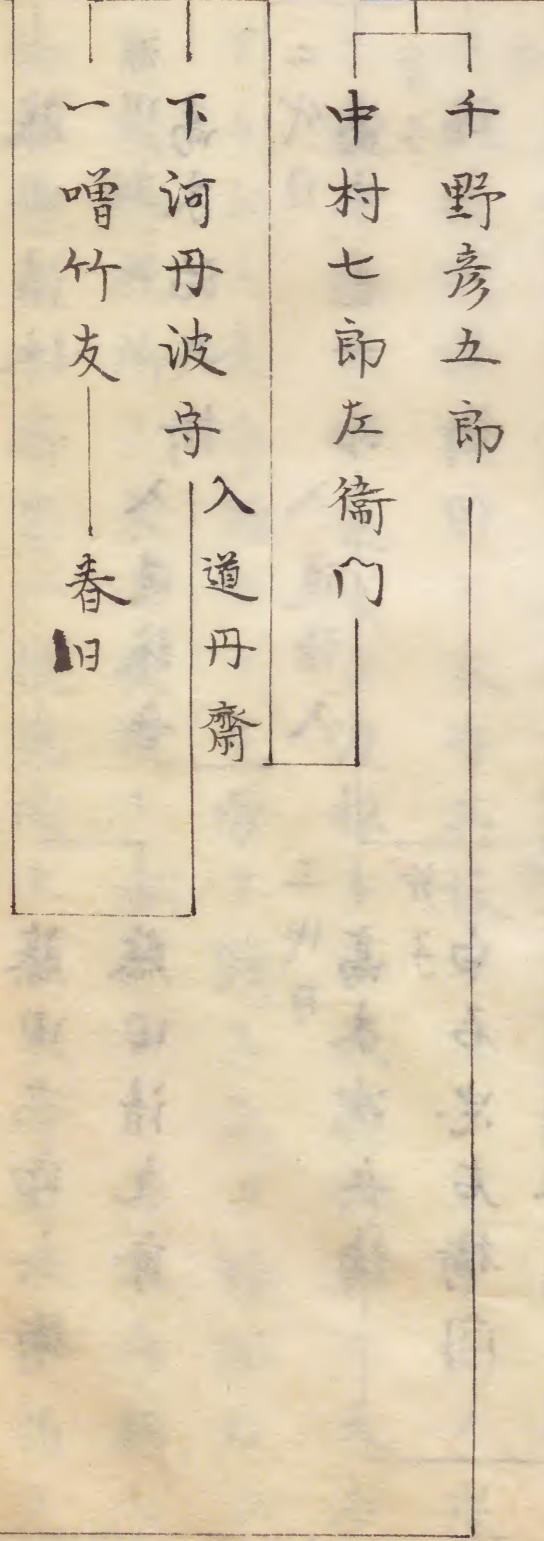 千野彦五郎
中村七郎左衞门
下河丹波守入道丹齋
一噌竹友 春日